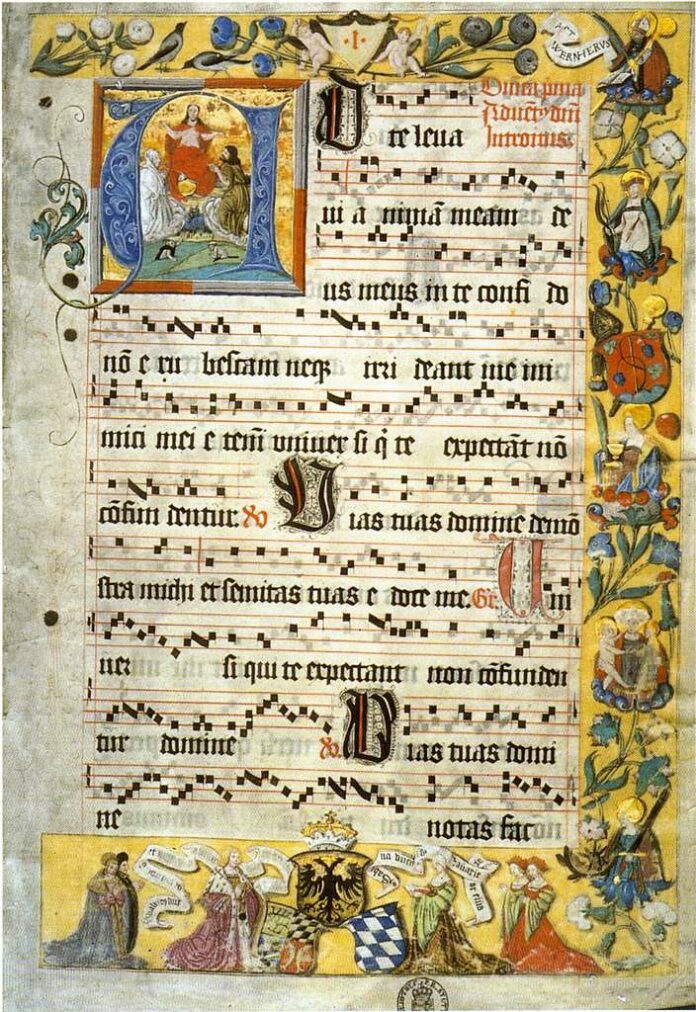 ·I·
AD te leua
Introitus:
ui a nimā meam de
us meus in te confi do
nō e ru bescam neq irri deant me ini
mici mei e tem̄ vniuer si q̇ te expectāt nō
cōfun dentur. Vias tuas domine demō
stra michi et semitas tuas e doce me. Gr. Uni
uer si qui te expectant non cōfunden
tur domine Vias tuas domi
ne notas fac